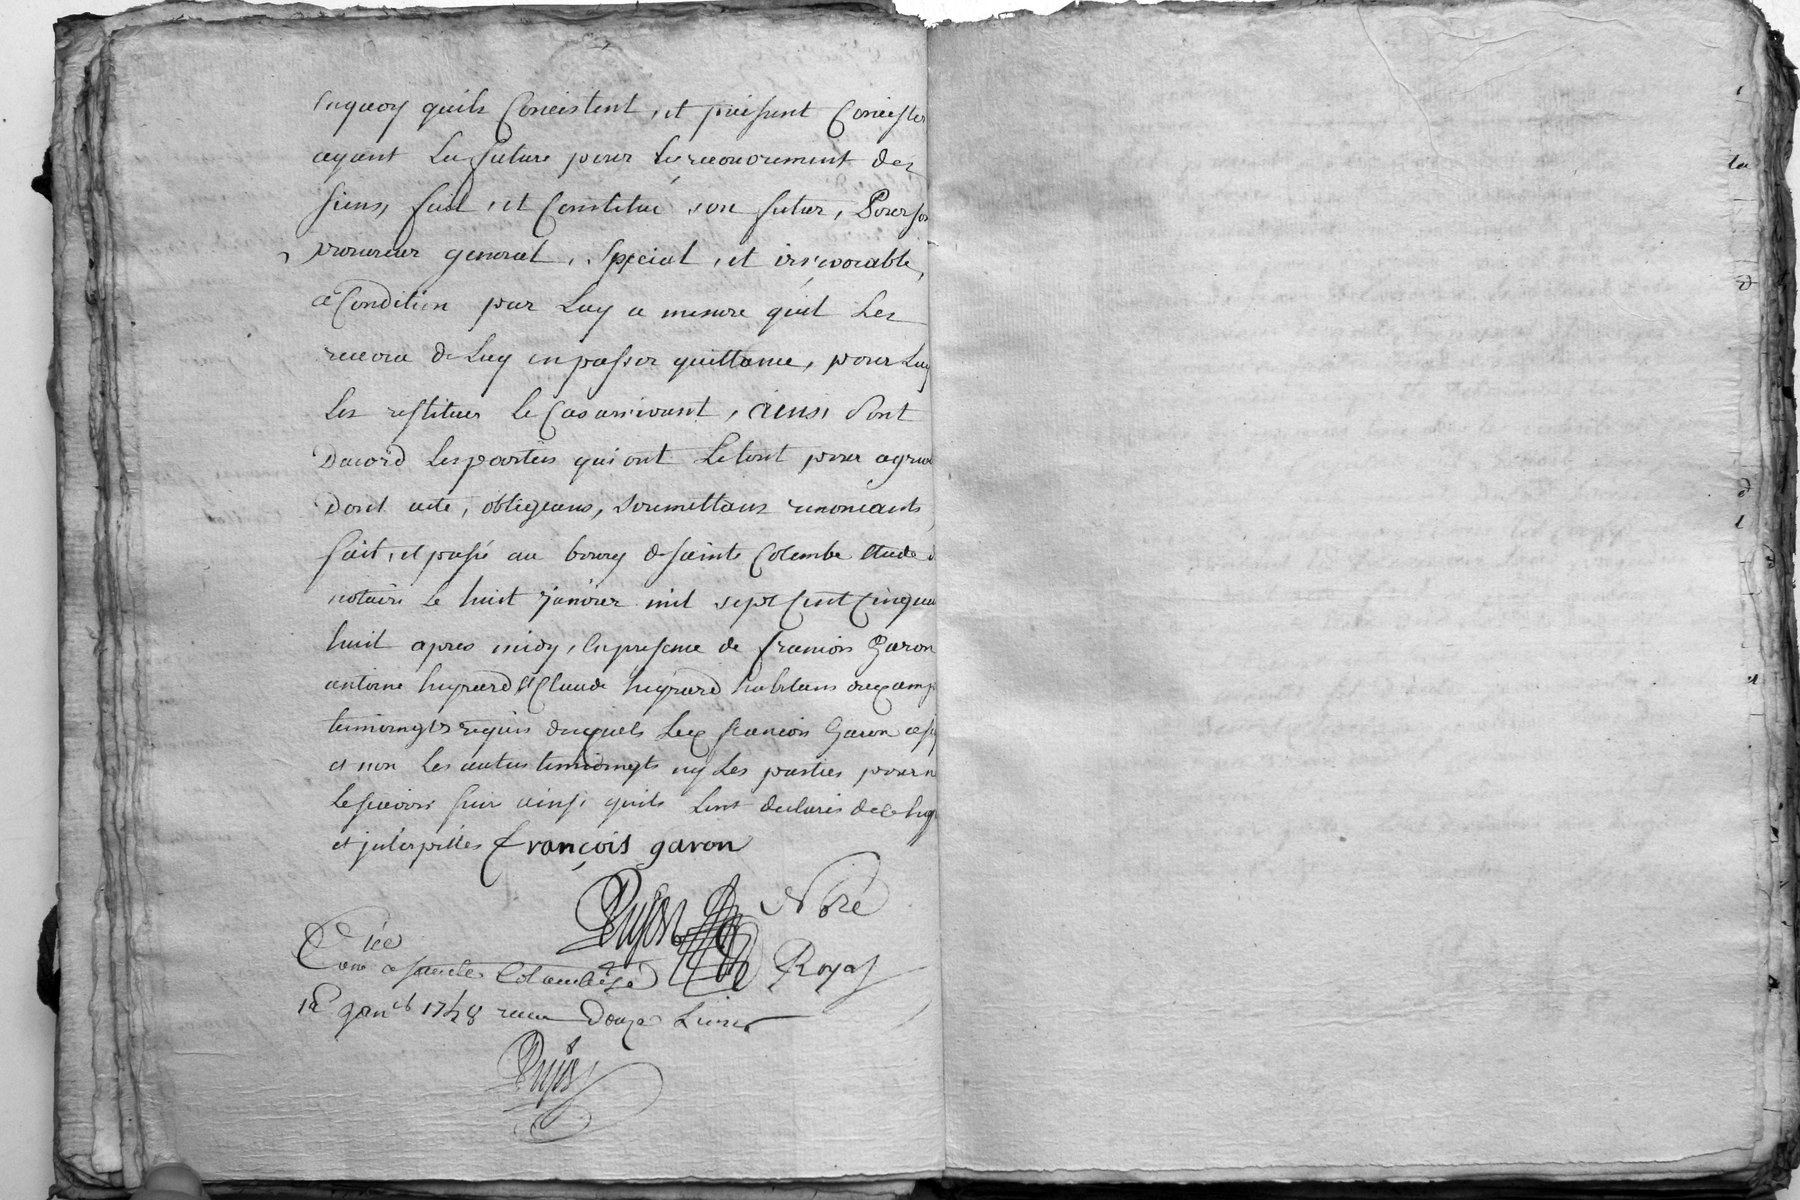 Enquoy quils Concistent, et puissent Concister
ayant La future pour Le recouvrement des
siens, fait, et Constitué son futur, Pour son
procureur general, Special, et irrevocable,
a Condition par Luy a mesure quil Les
recevra de Luy en passer quittance, pour Luy
Les restituer le Cas arrivant, ainsi sont
Dacord Les parties qui ont Le tout pour agrea
Dont acte, obligeans, soumettans renoncants,
fait, et passé au bourg de sainte Colombe Etude d
notaire le huit Janvier mil sept Cent Cinqua
huit apres midy, En presence de francois Garon
antoine Et Claude habitans
temoingts requis duquels Led francois Garon a
et non les autres temoingts ny Les parties pour n
Le scavoir faire ainsi quils Lont declarés de ce
et interpellés françois garon
Pujos Nore
Royal
Clée
Cone a saincte Colombe le
18 Janer 1758 receu Douze Livres
Pujos